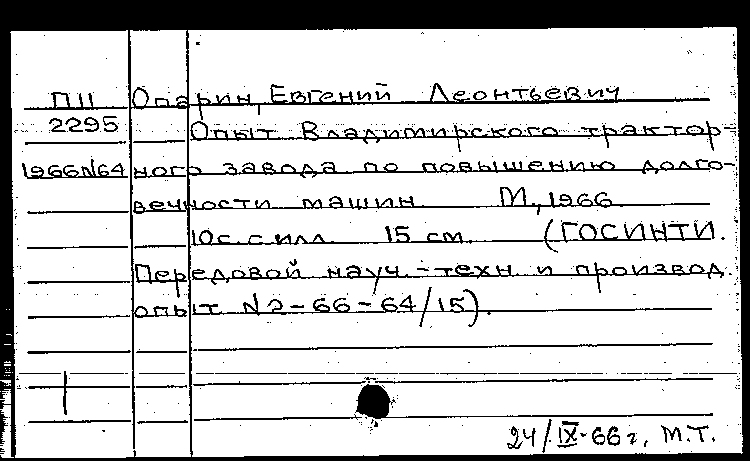 ПII Опарин, Евгений Леонтьевич
2295 Опыт Владимирского трактор-
1966N64 ного завода по повышению долго-
вечности машин. М., 1966.
10с. с илл. 15 см. (ГОСИНТИ.
Передовой науч.-техн. и производ.
опыт N2-66-64/15).
24/IX-66г, М.Т.